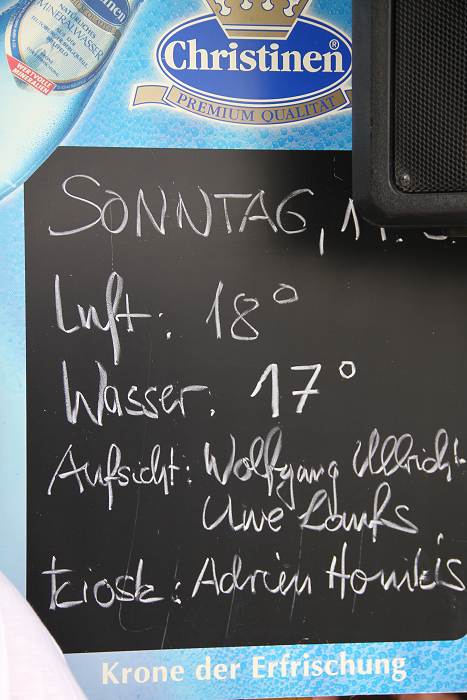 NATÜRLICHES
MINERALWASSER
WERTVOLLE
MINERALIEN
Christinen®
PREMIUM QUALITÄT
SONNTAG,
Luft: 18°
Wasser: 17°
Aufsicht: Wolfgang Ullrich
Uwe
Kiosk: Adrien
Krone der Erfrischung